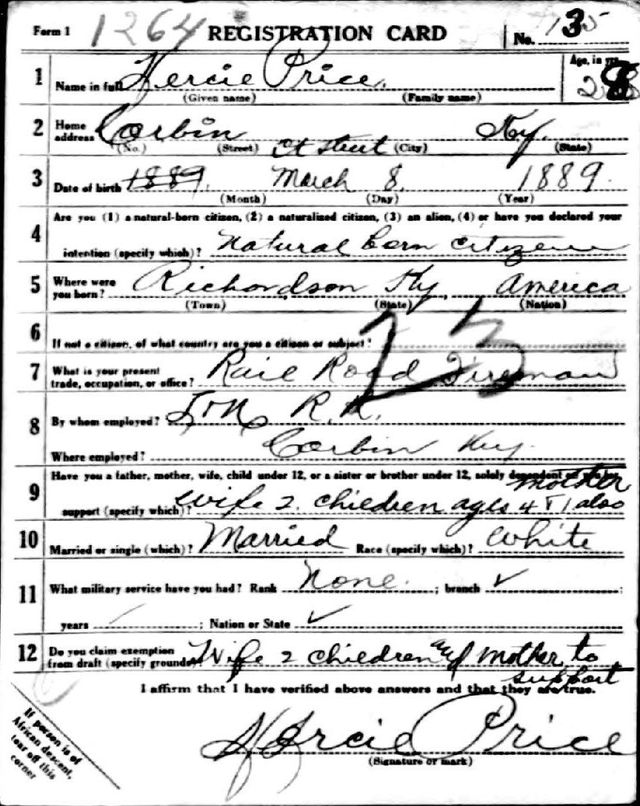 Form 1 1264 REGISTRATION CARD No. 135
1 Name in full Hercie Price. Age, in yrs. 28
(Given name) (Family name)
2 Home address Corbin Ky.
(No.) (Street) Ct Street (City) (State)
3 Date of birth 1889. March 8. 1889.
(Month) (Day) (Year)
Are you (1) a natural-born citizen, (2) a naturalized citizen, (3) an alien, (4) or have you declared your
4 intention (specify which)? Natural born citizen
5 Where were you born? Richardson Ky. America
(Town) (State) (Nation)
6 If not a citizen, of what country are you a citizen or subject?
23
7 What is your present trade, occupation, or office? Rail Road Fireman
8 By whom employed? L & N R.R.
Where employed? Corbin Ky.
9 Have you a father, mother, wife, child under 12, or a sister or brother under 12, solely dependent on you for
mother
support (specify which)? wife 2. children ages 4 & 1 also
10 Married or single (which)? Married Race (specify which)? White
11 What military service have you had? Rank None. ; branch ✓
years ✓ ; Nation or State ✓
12 Do you claim exemption from draft (specify grounds)? Wife 2 children and mother to
support
I affirm that I have verified above answers and that they are true.
Hercie Price
(Signature or mark)
If person is of
African descent,
tear off this
corner